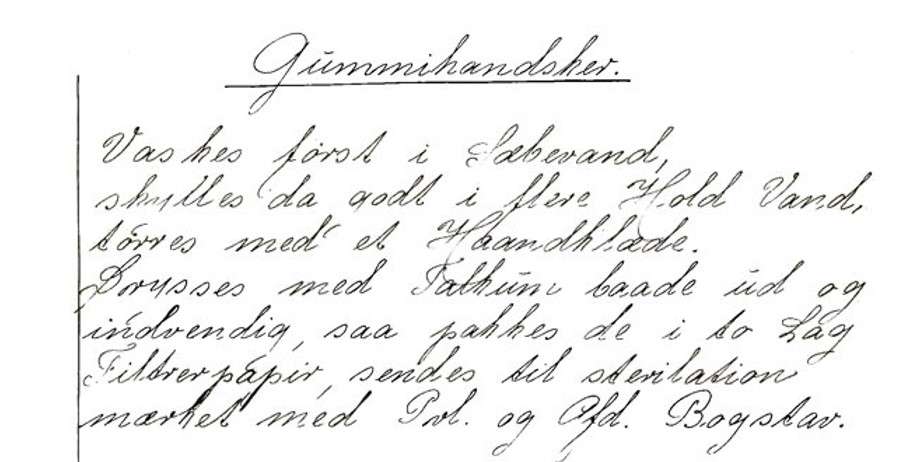 Gummihandsker.
Vaskes først i Sæbevand,
skylles da godt i flere Hold Vand,
tørres med et Haandklæde.
Drysses med Talkum baade ud og
indvendig, saa pakkes de i to Lag
Filtrerpapir, sendes til sterilation
mærket med Pvl. og Afd. Bogstav.